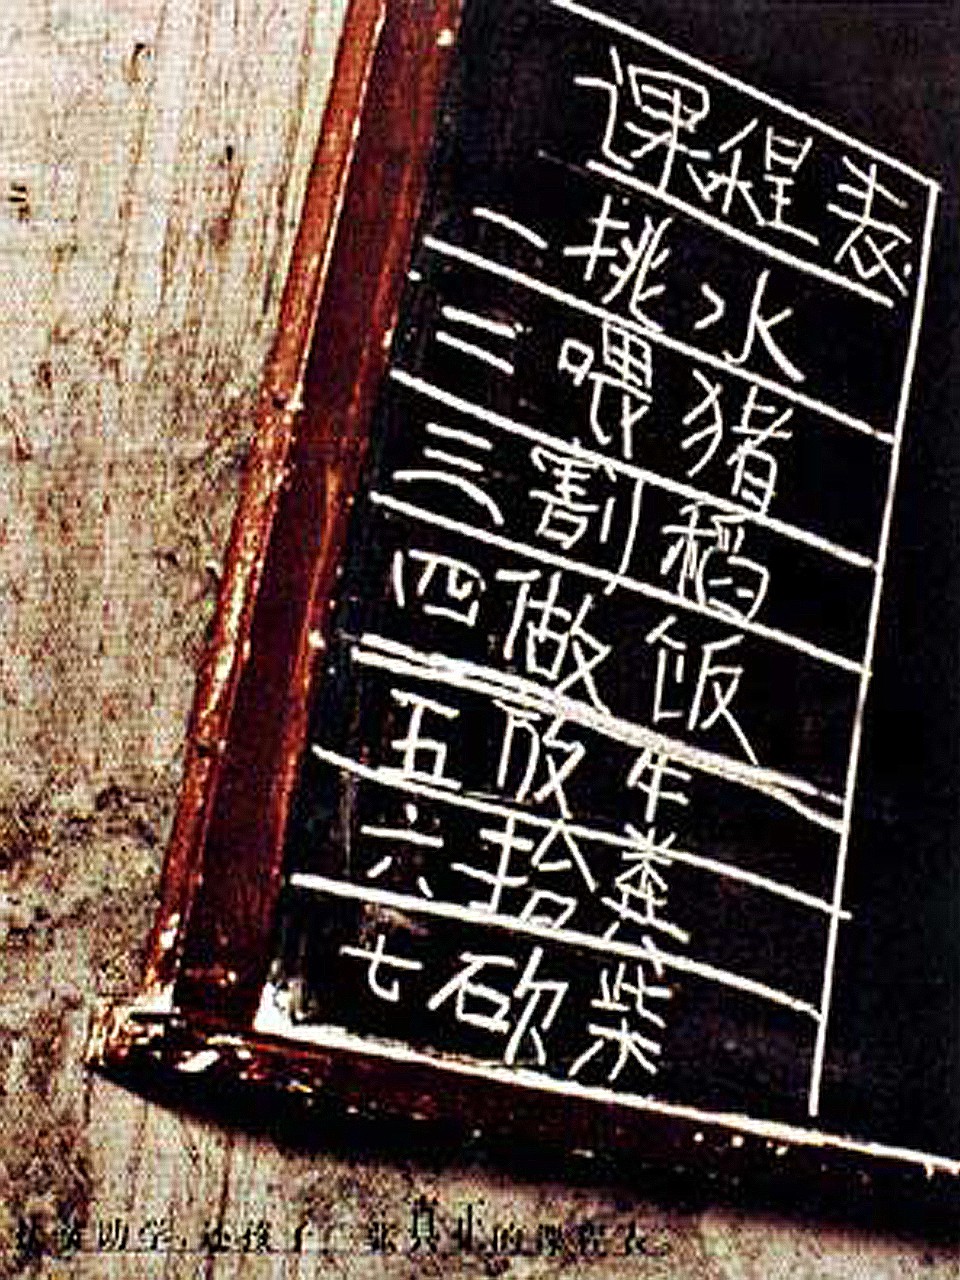 课程表
一 挑水
二 喂猪
三 割稻
四 做饭
五 放牛
六 拾粪
七 砍柴
扶贫助学,还孩子一张真正的课程表。